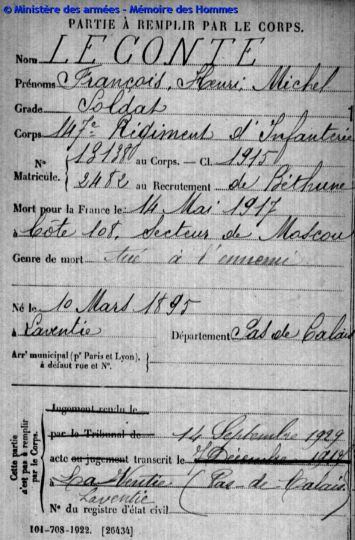 © Ministère des armées - Mémoire des Hommes
PARTIE À REMPLIR PAR LE CORPS.
Nom LE CONTE
Prénoms François, Henri, Michel
Grade Soldat
Corps 147e Régiment d'Infanterie
N° Matricule. { 13138 au Corps. — Cl. 1915
2482 au Recrutement de Béthune
Mort pour la France le 14 Mai 1917
à Côte 108, Secteur de Moscou
Genre de mort tué à l'ennemi
Né le 10 Mars 1895
à Laventie Département Pas de Calais
Arrt municipal (pr Paris et Lyon), à défaut rue et N°.
Cette partie n'est pas à remplir par le Corps.
Jugement rendu le
par le Tribunal de 14 Septembre 1929
acte ou jugement transcrit le 7 Décembre 1919
à La Ventie (Pas-de-Calais)
Laventie
N° du registre d'état civil
101-708-1922. [26434]